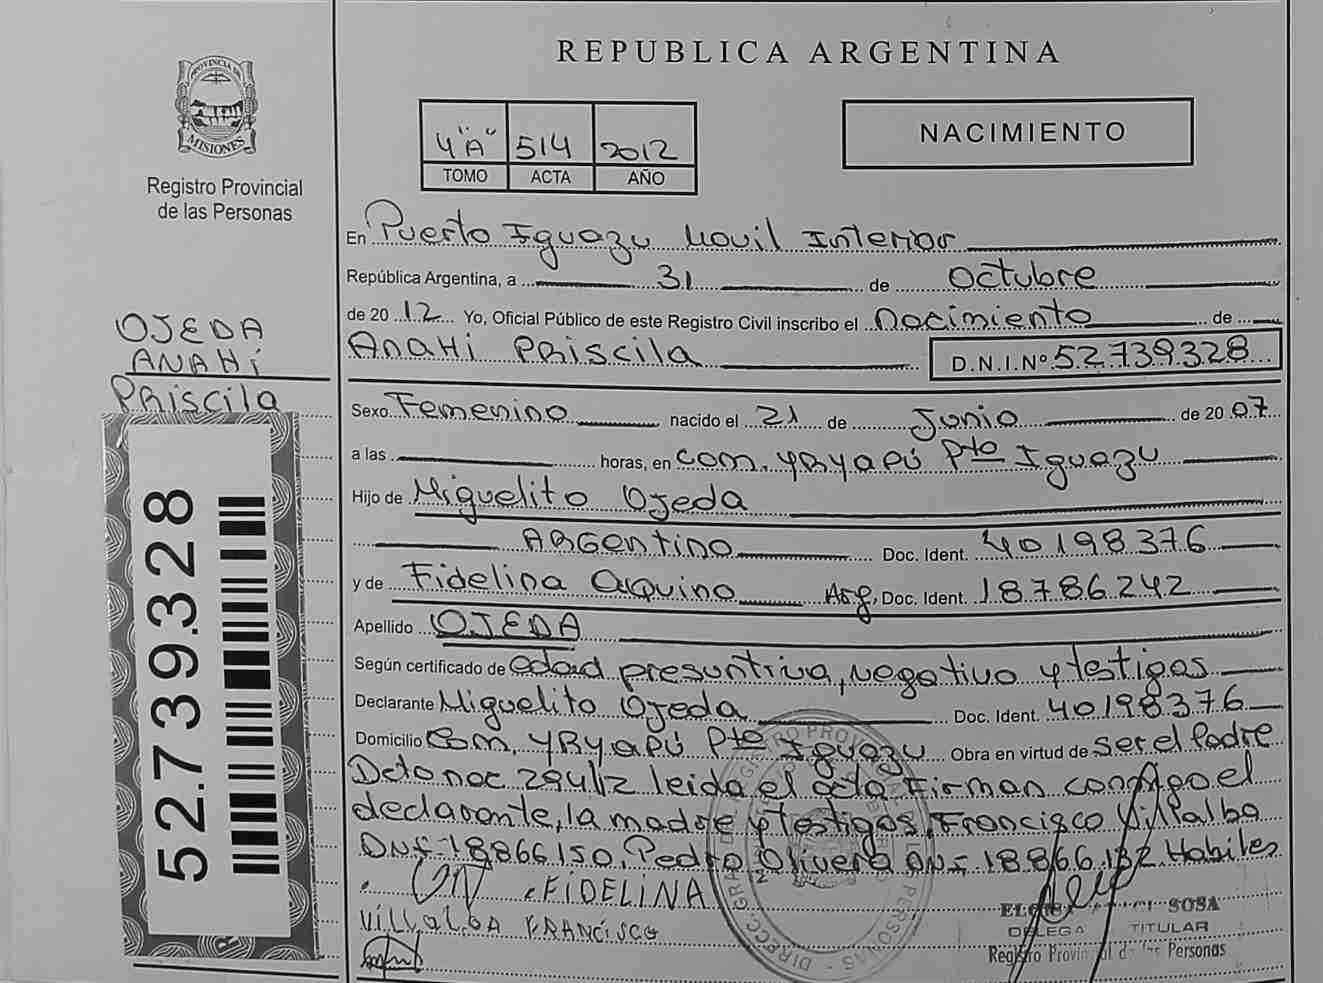 REPUBLICA ARGENTINA
PROVINCIA DE
MISIONES
Registro Provincial
de las Personas
4"A" 514 2012
TOMO ACTA AÑO
NACIMIENTO
En Puerto Iguazu Movil Interior
República Argentina, a 31 de Octubre
de 2012 Yo, Oficial Público de este Registro Civil inscribo el nacimiento de
Anahi Priscila D.N.I.Nº 52739328
OJEDA
ANAHí
Priscila
Sexo Femenino nacido el 21 de Junio de 2007
a las horas, en Com. YRYAPÚ Pto Iguazu
Hijo de Miguelito Ojeda
ARgentino Doc. Ident. 40198376
y de Fidelina Aquino Arg. Doc. Ident. 18786242
Apellido OJEDA
Según certificado de edad presuntiva, negativo y testigos
Declarante Miguelito Ojeda Doc. Ident. 40198376
Domicilio Com. YRYAPÚ Pto Iguazu Obra en virtud de ser el Padre
Dcto nac 294/12 leida el acta Firman conmigo el
declarante, la madre y testigos, Francisco Villalba
DNI 18866150, Pedro Olivera DNI 18.866.132 Habiles
FIDELINA
VILLALBA FRANCISCO
SOSA
DELEGA TITULAR
Registro Provincial de las Personas
52.739.328